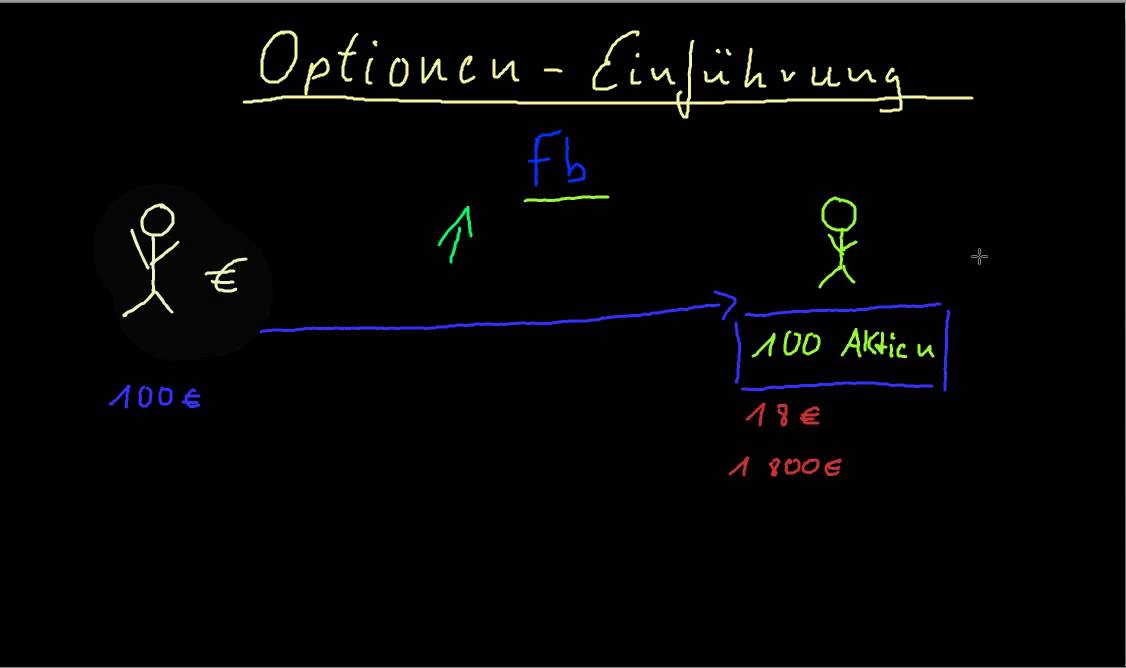 Optionen - Einführung
Fb
€
100 Aktien
100€
18€
1 800€